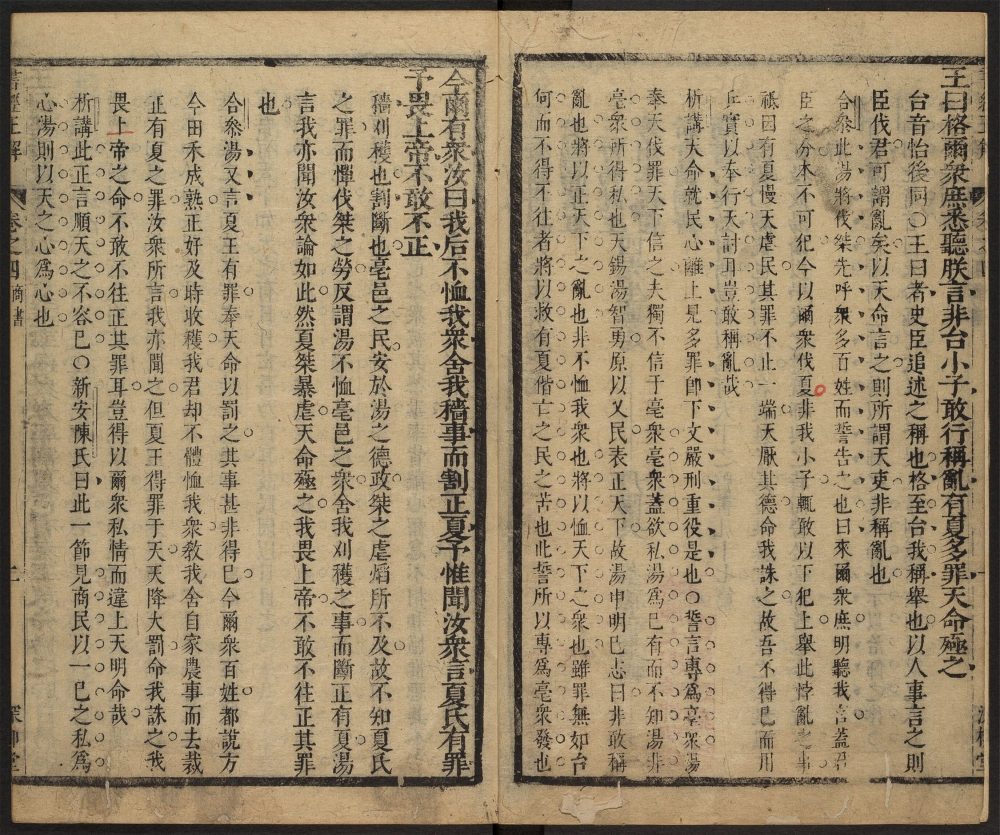 王曰格爾衆庶悉聽朕言非台小子敢行稱亂有夏多罪天命殛之
台音怡後同○王曰者史臣追述之稱也格至台我稱舉也以人事言之則
臣伐君可謂亂矣以天命言之則所謂天吏非稱亂也
合參此湯將伐桀先呼衆多百姓而誓告之也曰來爾衆庶明聽我言蓋君
臣之分本不可犯今以爾衆伐夏非我小子輒敢以下犯上舉此悖亂之事
祇因有夏慢天虐民其罪不止一端天厭其德命我誅之故吾不得已而用
兵實以奉行天討耳豈敢稱亂哉
析講天命就民心離上見多罪卽下文嚴刑重役是也○誓言專爲亳衆湯
奉天伐罪天下信之夫獨不信于亳衆亳衆蓋欲私湯爲已有而不知湯非
亳衆所得私也天錫湯智勇原以乂民表正天下故湯申明已志曰非敢稱
亂也將以正天下之亂也非不恤我衆也將以恤天下之衆也雖罪無如台
何而不得不往者將以救有夏偕亡之民之苦也此誓所以專爲亳衆發也
今爾有衆汝曰我后不恤我衆舍我穡事而割正夏予惟聞汝衆言夏氏有罪
予畏上帝不敢不正
穡刈穫也割斷也亳邑之民安於湯之德政桀之虐熖所不及故不知夏氏
之罪而憚伐桀之勞反謂湯不恤亳邑之衆舍我刈穫之事而斷正有夏湯
言我亦聞汝衆論如此然夏桀暴虐天命殛之我畏上帝不敢不往正其罪
也
合參湯又言夏王有罪奉天命以罰之其事甚非得已今爾衆百姓都說方
今田禾成熟正好及時收穫我君却不體恤我衆敎我舍自家農事而去裁
正有夏之罪汝衆所言我亦聞之但夏王得罪于天天降大罰命我誅之我
畏上帝之命不敢不往正其罪耳豈得以爾衆私情而違上天明命哉
析講此正言順天之不容已○新安陳氏曰此一節見商民以一已之私爲
心湯則以天之心爲心也
書經正解 卷之四商書 二 深柳堂